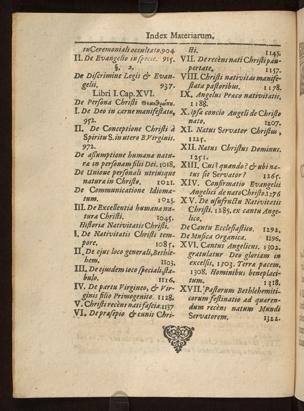 Index Materiarum,
tu Ceremoniali occultato. 904
II. De Evangelio in specie. 915.
§. 2.
De Discrimine Legis & Evangelii, 937.
Libri I. Cap. XVI.
De Persona Christi
I. De Deo in carne manifestato,
952.
II. De Conceptione Christi à
Spiritu S. in utero B. Virginis.
972.
De assumptione humanæ naturæ
in personam filii Dei. 1018,
De Unione personali utriusque
naturæ in Christo. 1021.
De Communicatione Idiomatum.
1025.
De Excellentia humanæ naturæ
Christi. 1045.
Historia Nativitatis Christi.
I. De Nativitatis Christi tempore,
1085.
II. De ejus loco generali, Bethlehem,
1103.
III. De ejusdem loco speciali, stabulo.
1116.
IV. De partu Virgineo, & Virginis
filio Primogenito. 1128.
V. Christi recèns nati fascia. 1137
VI. De præsepio & cunis Christi.
1143.
VII. De recèns nati Christi paupertate,
1157.
VIII. Christi nativitas manifesta
pastoribus. 1178.
IX. Angelus Præco nativitatis,
1188.
X. ipsa concio Angeli de Christo
nato, 1207.
XI. Natus Servator Christus,
1225.
XII. Natus Christus Dominus.
1251.
XIII. Cui? quando? & ubi natus
sit Servator? 1265.
XIV. Confirmatio Evangelii
Angelici de nato Christo 1276
XV. De usufructu Nativitatis
Christi. 1285. ex cantu Angelico,
De Cantu Ecclesiastico. 1292.
De Musica Organica. 1296,
XVI. Cantus Angelicus. 1302.
gratulatur Deo gloriam in
excelsis, 1303. Terra pacem,
1308. Hominibus beneplacitum,
1318.
XVII. Pastorum Bethlehemiticorum
festinatio ad quærendum
recèns natum Mundi
Servatorem. 1322.